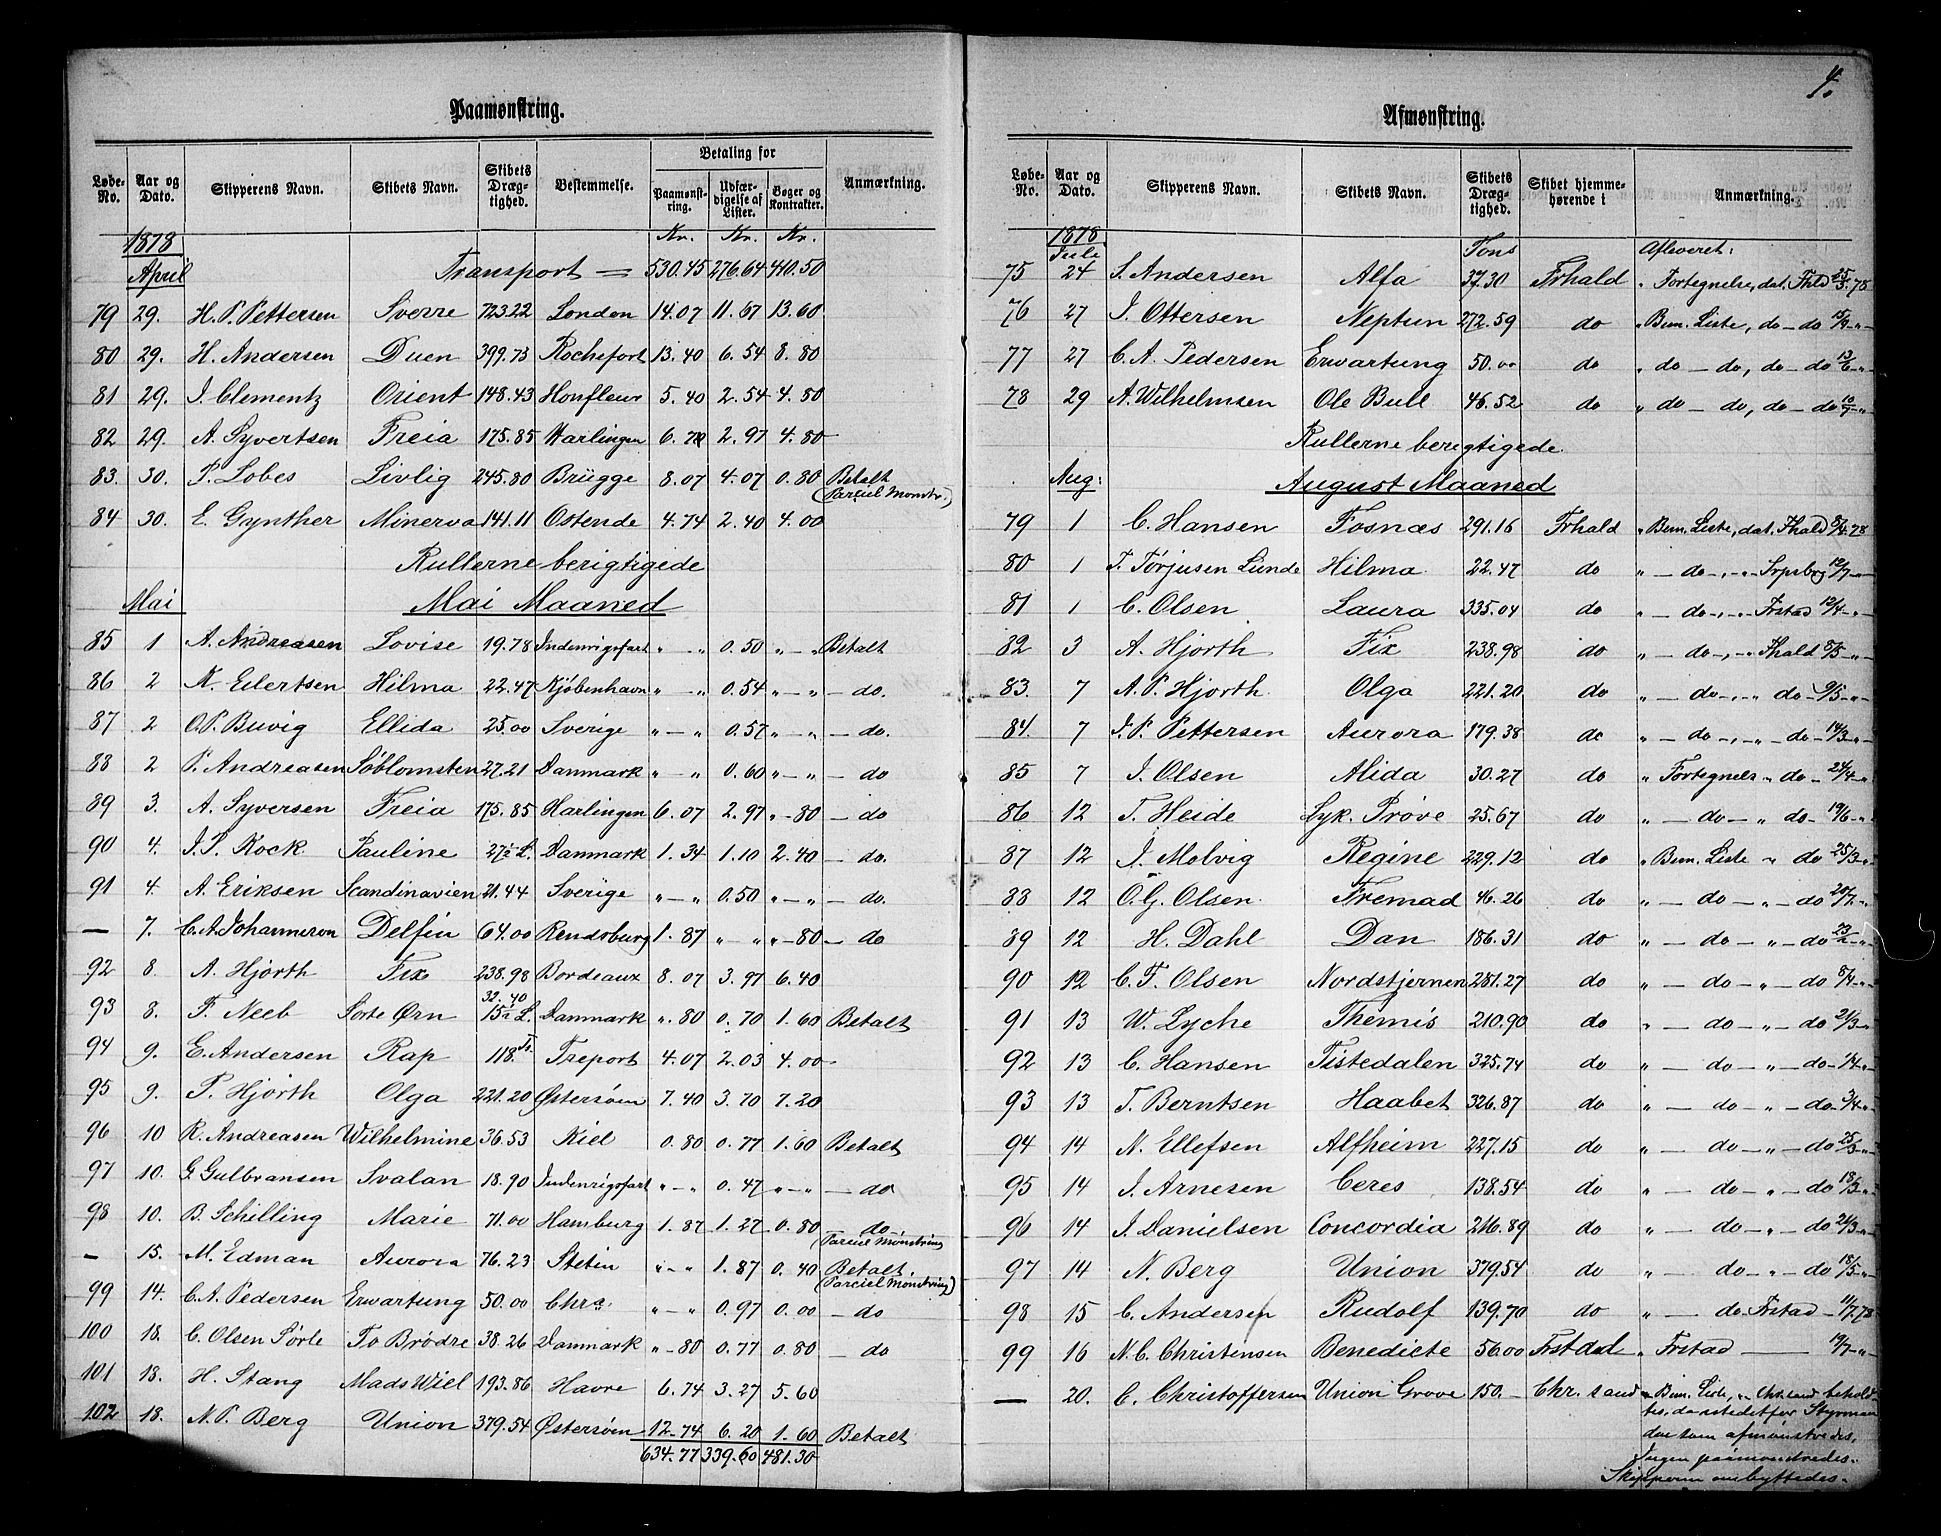 4.
Paamønstring.
Løbe-No. Aar og Dato. Skipperens Navn. Skibets Navn. Skibets Dræg-tighed. Bestemmelse. Betaling for Paamønst-ring. Udfær-digelse af Lister. Bøger og Kontrakter. Anmærkning.
1878 Kr. Kr. Kr.
April Transport = 530.45 276.64 410.50
79 29. H. P. Pettersen Sverre 723.22 London 14.07 11.67 13.60
80 29. H. Andersen Duen 399.73 Rochefort 13.40 6.54 8.80
81 29. J. Clementz Orient 148.43 Honfleur 5.40 2.54 4.80
82 29. A. Syvertsen Freia 175.85 Harlingen 6. 2.97 4.80
83. 30. P. Lobes Livlig 245.80 Brügge 8.07 4.07 0.80 Betalt
(Parciel Mønstr.)
84 30. E. Gynther Minerva 141.11 Ostende 4.74 2.40 4.00
Rullerne berigtigede
Mai Mai Maaned
85 1 A. Andreasen Lovise 19.78 Indenrigsfart " — " 0.50 " — " Betalt
86 2 N. Eilertsen Hilma 22.47 Kjøbenhavn " — " 0.54 " — " — do.
87 2 O. P. Buvig Ellida 25.00 Sverige " — " 0.57 " — " — do.
88 2 P. Andreasen Søblomsten 27.21 Danmark " — " 0.60 " — " — do
89 3. A. Syversen Freia 175.85 Harlingen 6.07 2.97 " - 80 — do
90 4. J. P. Kock Pauline 27½ L. Danmark 1.34 1.10 2.40 — do.
91 4. A. Eriksen Scandinavien 21.44 Sverige " — " 0.50 " — " — do.
— 7. C. A. Johannesen Delfin 64.00 Rendsburg 1.87 " — " " - 80 — do
92 8. A. Hjorth Fix 238.98 Bordeaux 8.07 3.97 6.40
93 8. F. Neeb Sorte Ørn 32.40 15½ L. Danmark ". 80 0.70 1.60 Betalt
94 9. E. Andersen Rap 118 Ts. Treport 4.07 2.03 4.00
95 9. P. Hjorth Olga 221.20 Østersøen 7.40 3.70 7.20
96 10 R. Andreasen Wilhelmine 36.53 Kiel 0.80 0.77 1.60 Betalt
97 10. G. Gulbransen Svalan 18.90 Indenrigsfart " — " 0.47 " — " — do
98 10. B. Schilling Marie 71.00 Hamburg 1.87 1.27 0.80 do
(Parciel Mønstring
— 15. M. Edman Aurora 76.23 Stetin " — " 1.87 0.40 Betalt.
(Parciel Mønstring)
99 14. C. A. Pedersen Erwartung 50.00 Chra " — " 0.97 0.00 — do
100 18. C. Olsen Sørle To Brødre 38.26 Danmark " - 80 0.77 0.80 — do
101 18. H. Stang Mads Wiel 193.86 Havre 6.74 3.27 5.60
102 18. N. P. Berg Union 379.54 Østersøen 12.74 6.20 1.60 Betalt
634.77 339.60 481.30
Afmønstring.
Løbe-No. Aar og Dato. Skipperens Navn. Skibets Navn. Skibets Dræg-tighed. Skibet hjemme-hørende i Anmærkning.
1878 Tons Afleveret:
Juli
75 24 S. Andersen Alfa 37.30 Frhald " Fortegnelse, dat. Fhld 25/5-78
76 27 J. Ottersen Neptun 272.59 do " Bem. Liste, do — do 15/3 - "
77 27 C. A. Pedersen Erwartung 50.00 do " do — do, do — do 13/6 - "
78 29 A. Wilhelmsen Ole Bull 46.52 do " do — do, do — do 10/7 - "
Rullerne berigtigede
Aug: August Maaned
79 1 C. Hansen Fosnæs 291.16 Frhald " Bem. Liste, dat. Fhald 8/4-78
80 1 T. Tørjusen Lunde Hilma 22.47 do " — do — " Srpsbrg 12/7 - "
81 1 C. Olsen Laura 335.04 do " — do — " Frstad 12/4 - "
82 3 A. Hjorth Fix 238.98 do " — do — " Fhald 8/5 - "
83. 7 A. P. Hjorth Olga 221.20 do " — do — " do — 9/5 - "
84. 7 J. P. Pettersen Aurora 179.38 do " — do — " — do — 14/3 - "
85 7 J. Olsen Alida 30.27 do " Fortegnels " do — 24/4 - "
86 12 T. Heide Lyk. Prøve 25.67 do " — do — " do — 19/6 - "
87 12 J. Molvig Regine 229.12 do " Bem. Liste " do 25/3 - "
88 12 O. G. Olsen Fremad 46.26 do " — do — " — do 20/7 - "
89 12 H. Dahl Dan 186.31 do " — do — " — do 23/2 - "
90 12 C. F. Olsen Nordstjernen 281.27 do " — do — " — do 8/4 - "
91 13 W. Lyche Themis 210.90 do " — do — " — do 21/3 - "
92 13 C. Hansen Tistedalen 325.74 do " — do — " — do — 1/4 - "
93 13 T. Berntsen Haabet 326.87 do " — do — " — do — 3/4 - "
94 14 N. Ellefsen Alfheim 227.15 do " — do — " — do 25/3 - "
95 14 J. Arnesen Ceres 138.54 do " — do — " — do 18/3 - "
96 14 J. Danielsen Concordia 216.89 do " — do — " — do 21/3 - "
97 14 N. Berg Union 379.54 do " — do — " — do 18/5 - "
98 15 C. Andersen Rudolf 139.70 do " — do Frstad — 11/7.78
99 16 N. C. Christensen Benedicte 56.00 Frstdal " Frstad — 19/7 - "
— 20. C. Christoffersen Union Grove 150.— Chr. sand " Bem. Liste, " Chr.sand behold-
tes, da istedetfor Styrman
den som afmønstredes,
Ingen paamønstredes.
Skipperen ombyttedes.